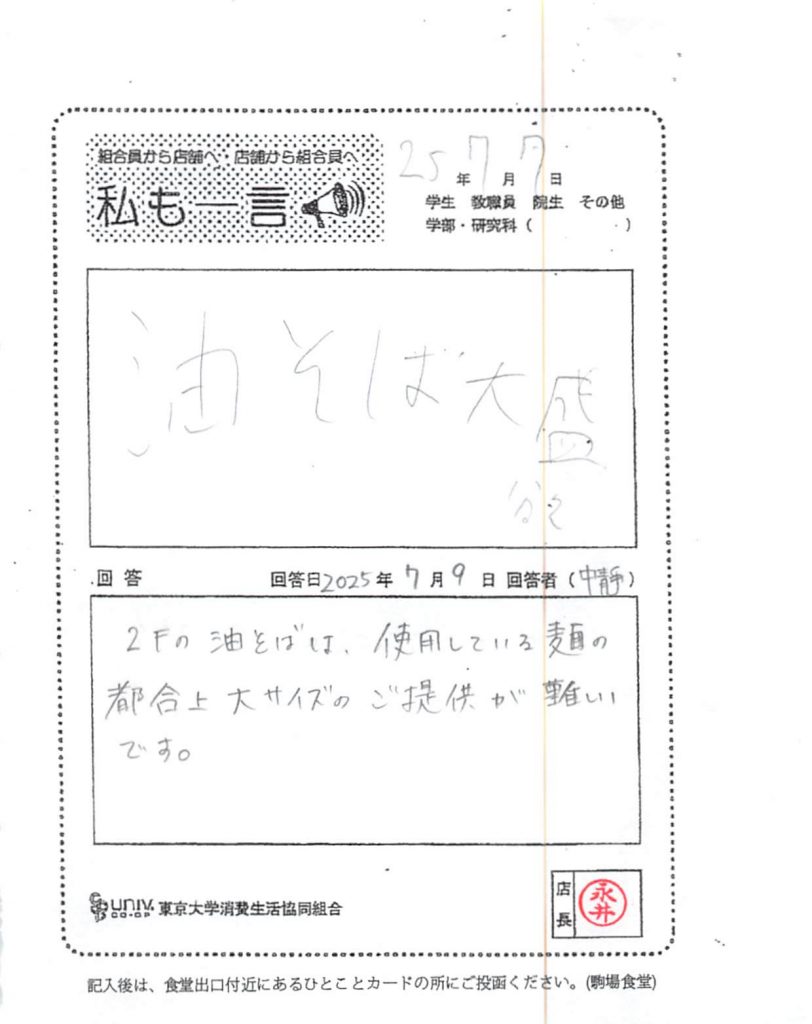 組合員から店舗へ・店舗から組合員へ
私も一言
25年7月7日
学生 教職員 院生 その他
学部・研究科( )
油そば大盛
回答 回答日2025年7月9日 回答者(中静)
2Fの油そばは、使用している麺の
都合上大サイズのご提供が難しい
です。
UNIV. CO-OP 東京大学消費生活協同組合
店長 永井
記入後は、食堂出口付近にあるひとことカードの所にご投函ください。(駒場食堂)